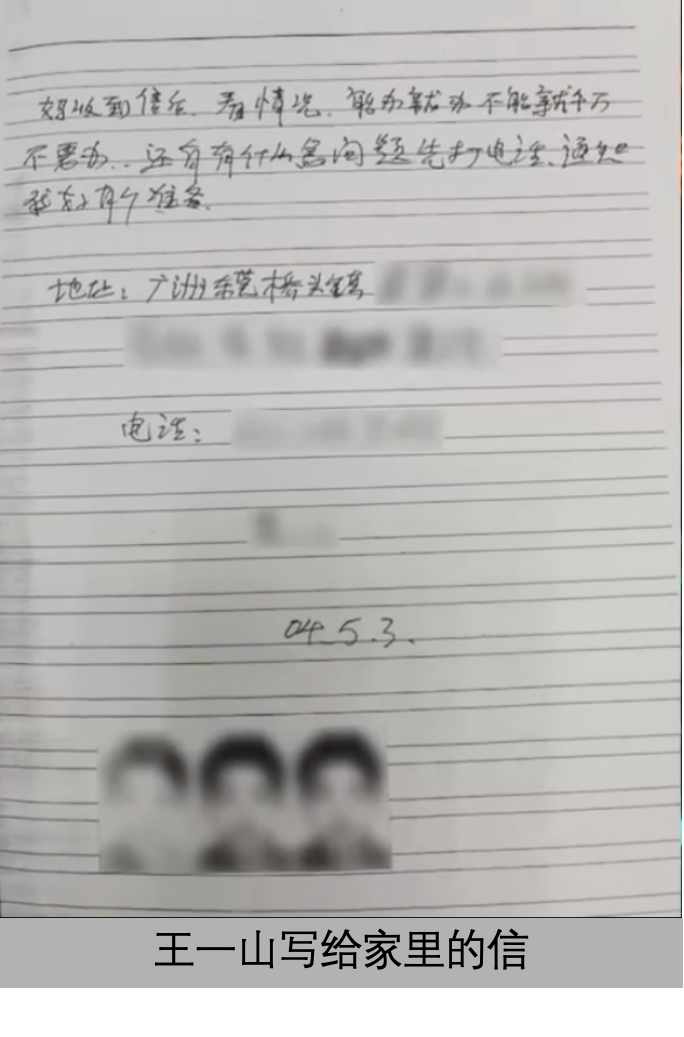 妈收到信后.看情况.能办就办不能就千万
不要办..还有有什么急问题先打电话.通知
我好有个准备.
地址：广州东莞桥头镇
电话：
04.5.3.
王一山写给家里的信